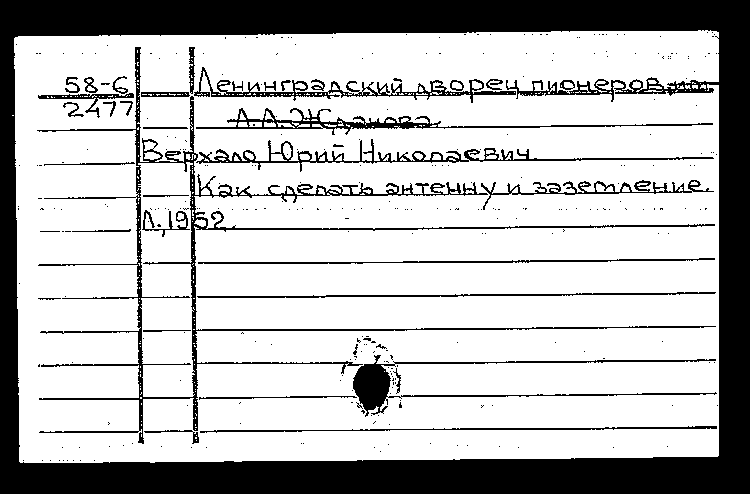 58-6 Ленинградский дворец пионеров им.
2477 А.А. Жданова.
Верхало, Юрий Николаевич.
Как сделать антенну и заземление.
Л., 1952.